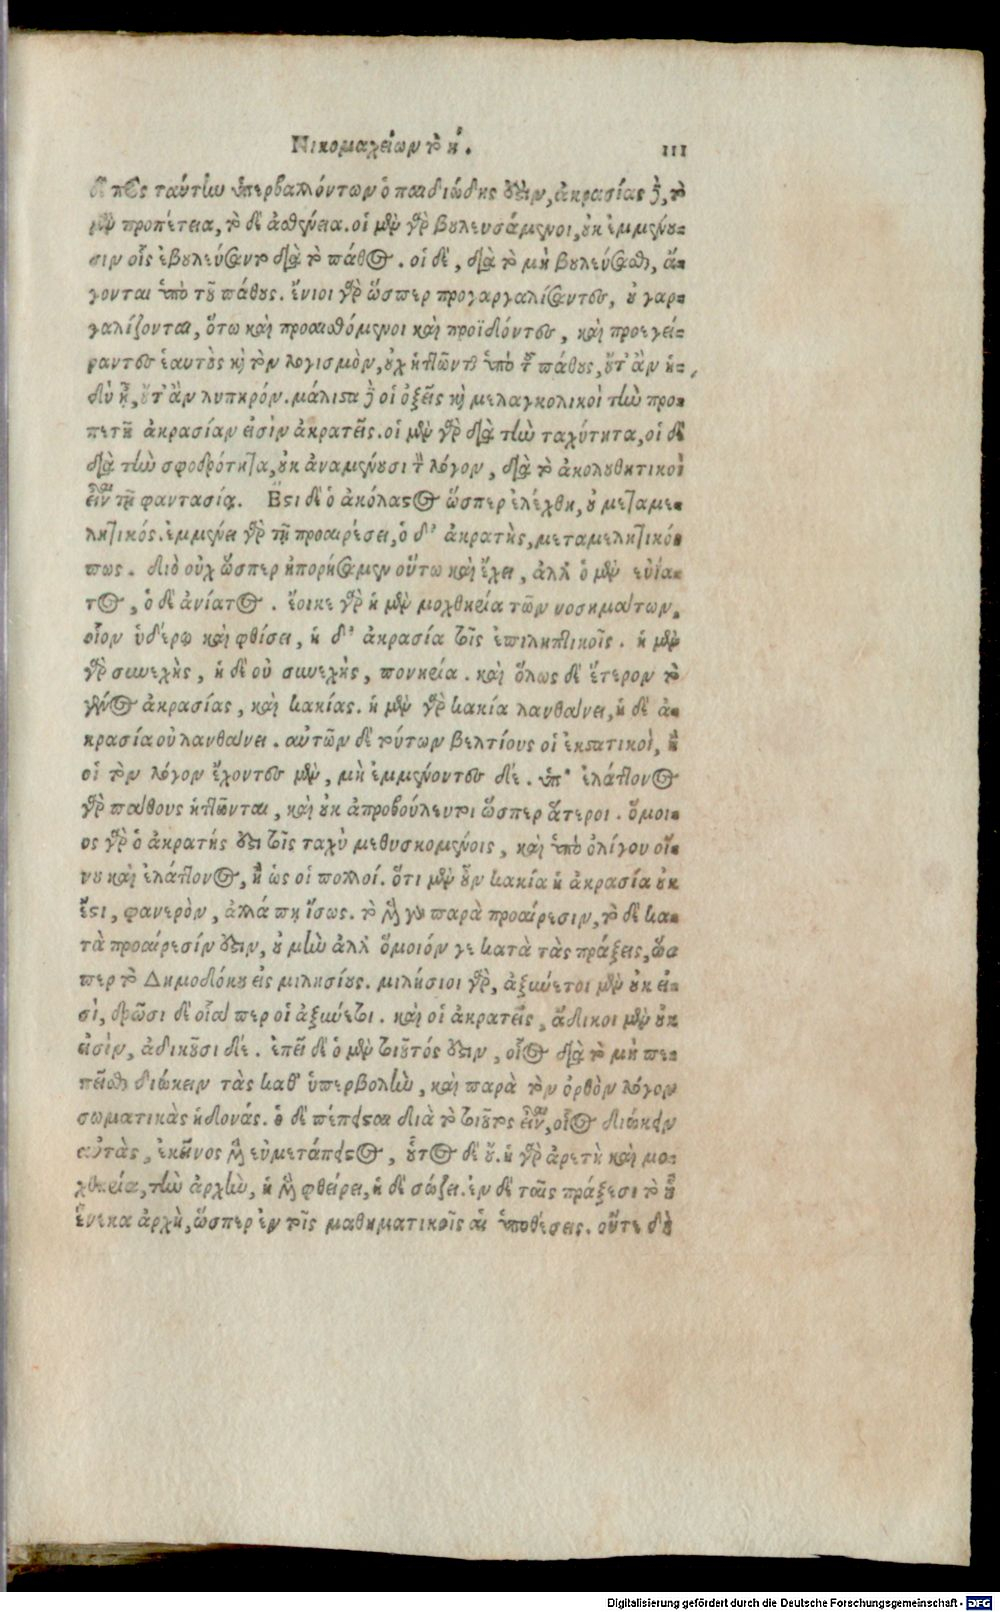 Νικομαχείων τὸ ή.
111
δὲ πρὸς ταύτην ὑπερβαλλόντων ὁ παιδιώδης ἐστιν, ἀκρασίας δὲ, τὸ
μὲν προπέτεια, τὸ δὲ ἀσθένεια. οἱ μὲν γὰρ βουλευσάμενοι, οὐκ ἐμμένου-
σιν οἷς ἐβουλεύσαντο διὰ τὸ πάθος. οἱ δὲ, διὰ τὸ μὴ βουλεύσασθαι, ἄ-
γονται ὑπὸ τοῦ πάθους. ἔνιοι γὰρ ὥσπερ προγαργαλίσαντες, οὐ γαρ-
γαλίζονται, ὅτω καὶ προαισθόμενοι καὶ προϊδόντες, καὶ προεγεί-
ραντες ἑαυτοὺς καὶ τὸν λογισμὸν, οὐχ ἡττῶνται ὑπὸ τοῦ πάθους, οὔτ' ἂν ἡ-
δὺ ᾖ, οὔτ' ἂν λυπηρόν. μάλιστα δὲ οἱ ὀξεῖς καὶ μελαγχολικοὶ τὴν προ-
πετῆ ἀκρασίαν εἰσὶν ἀκρατεῖς. οἱ μὲν γὰρ διὰ τὴν ταχύτητα, οἱ δὲ
διὰ τὴν σφοδρότητα, οὐκ ἀναμένουσι τὸν λόγον, διὰ τὸ ἀκολουθητικοὶ
εἶναι τῇ φαντασίᾳ. Εστι δὲ ὁ ἀκόλαστος ὥσπερ ἐλέχθη, οὐ μεταμε-
λητικός. ἐμμένει γὰρ τῇ προαιρέσει, ὁ δ' ἀκρατὴς, μεταμελητικὸς
πως. διὸ οὐχ ὥσπερ ἠπορήσαμεν οὕτω καὶ ἔχει, ἀλλ' ὁ μὲν εὐία-
τος, ὁ δὲ ἀνίατος. ἔοικε γὰρ ἡ μὲν μοχθηρία τῶν νοσημάτων,
οἷον ὑδέρῳ καὶ φθίσει, ἡ δ' ἀκρασία τοῖς ἐπιληπτικοῖς. ἡ μὲν
γὰρ συνεχὴς, ἡ δὲ οὐ συνεχὴς, πονηρία. καὶ ὅλως δὲ ἕτερον τὸ
γένος ἀκρασίας, καὶ κακίας. ἡ μὲν γὰρ κακία λανθάνει, ἡ δὲ ἀ-
κρασία οὐ λανθάνει. αὐτῶν δὲ τούτων βελτίους οἱ ἐκστατικοὶ, ἢ
οἱ τὸν λόγον ἔχοντες μὲν, μὴ ἐμμένοντες δέ. ὑπ' ἐλάττονος
γὰρ πάθους ἡττῶνται, καὶ οὐκ ἀπροβούλευτοι ὥσπερ ἅτεροι. ὅμοι-
ος γὰρ ὁ ἀκρατής ἐστι τοῖς ταχὺ μεθυσκομένοις, καὶ ὑπὸ ὀλίγου οἴ-
νου καὶ ἐλάττονος, ἢ ὡς οἱ πολλοί. ὅτι μὲν οὖν κακία ἡ ἀκρασία οὐκ
ἔστι, φανερὸν, ἀλλά πῃ ἴσως. τὸ μὲν γὰρ παρὰ προαίρεσιν, τὸ δὲ κα-
τὰ προαίρεσίν ἐστιν, οὐ μὴν ἀλλ' ὅμοιόν γε κατὰ τὰς πράξεις, ὥσ
περ τὸ Δημοδόκου εἰς μιλησίους. μιλήσιοι γὰρ, ἀξιώετοι μὲν οὐκ εἰ-
σὶ, δρῶσι δὲ οἷά περ οἱ ἀξιώετοι. καὶ οἱ ἀκρατεῖς, ἄδικοι μὲν οὐκ
εἰσὶν, ἀδικοῦσι δέ. ἐπεὶ δὲ ὁ μὲν τοιοῦτός ἐστιν, οἷος διὰ τὸ μὴ πε-
πεῖσθαι διώκειν τὰς καθ' ὑπερβολὴν, καὶ παρὰ τὸν ὀρθὸν λόγον
σωματικὰς ἡδονάς. ὁ δὲ πέπεισται διὰ τὸ τοιοῦτος εἶναι, οἷος διώκειν
αὐτὰς, ἐκεῖνος μὲν εὐμετάπειστος, οὗτος δὲ οὔ. ἡ γὰρ ἀρετὴ καὶ μο-
χθηρία, τὴν ἀρχὴν, ἡ μὲν φθείρει, ἡ δὲ σώζει. ἐν δὲ ταῖς πράξεσι τὸ οὗ
ἕνεκα ἀρχὴ, ὥσπερ ἐν τοῖς μαθηματικοῖς αἱ ὑποθέσεις. οὔτε δὴ
Digitalisierung gefördert durch die Deutsche Forschungsgemeinschaft - DFG